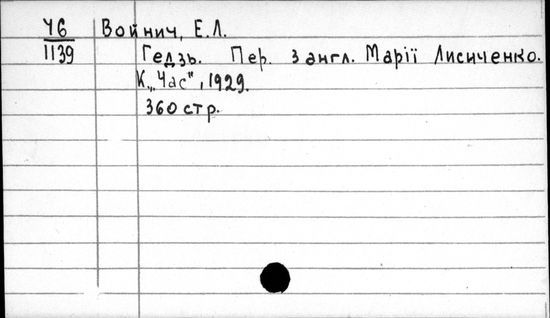 Ч6 Войнич, Е.Л.
1139 Гедзь. Пер. з англ. Марії Лисиченко.
К. „Час", 1929.
360 стр.